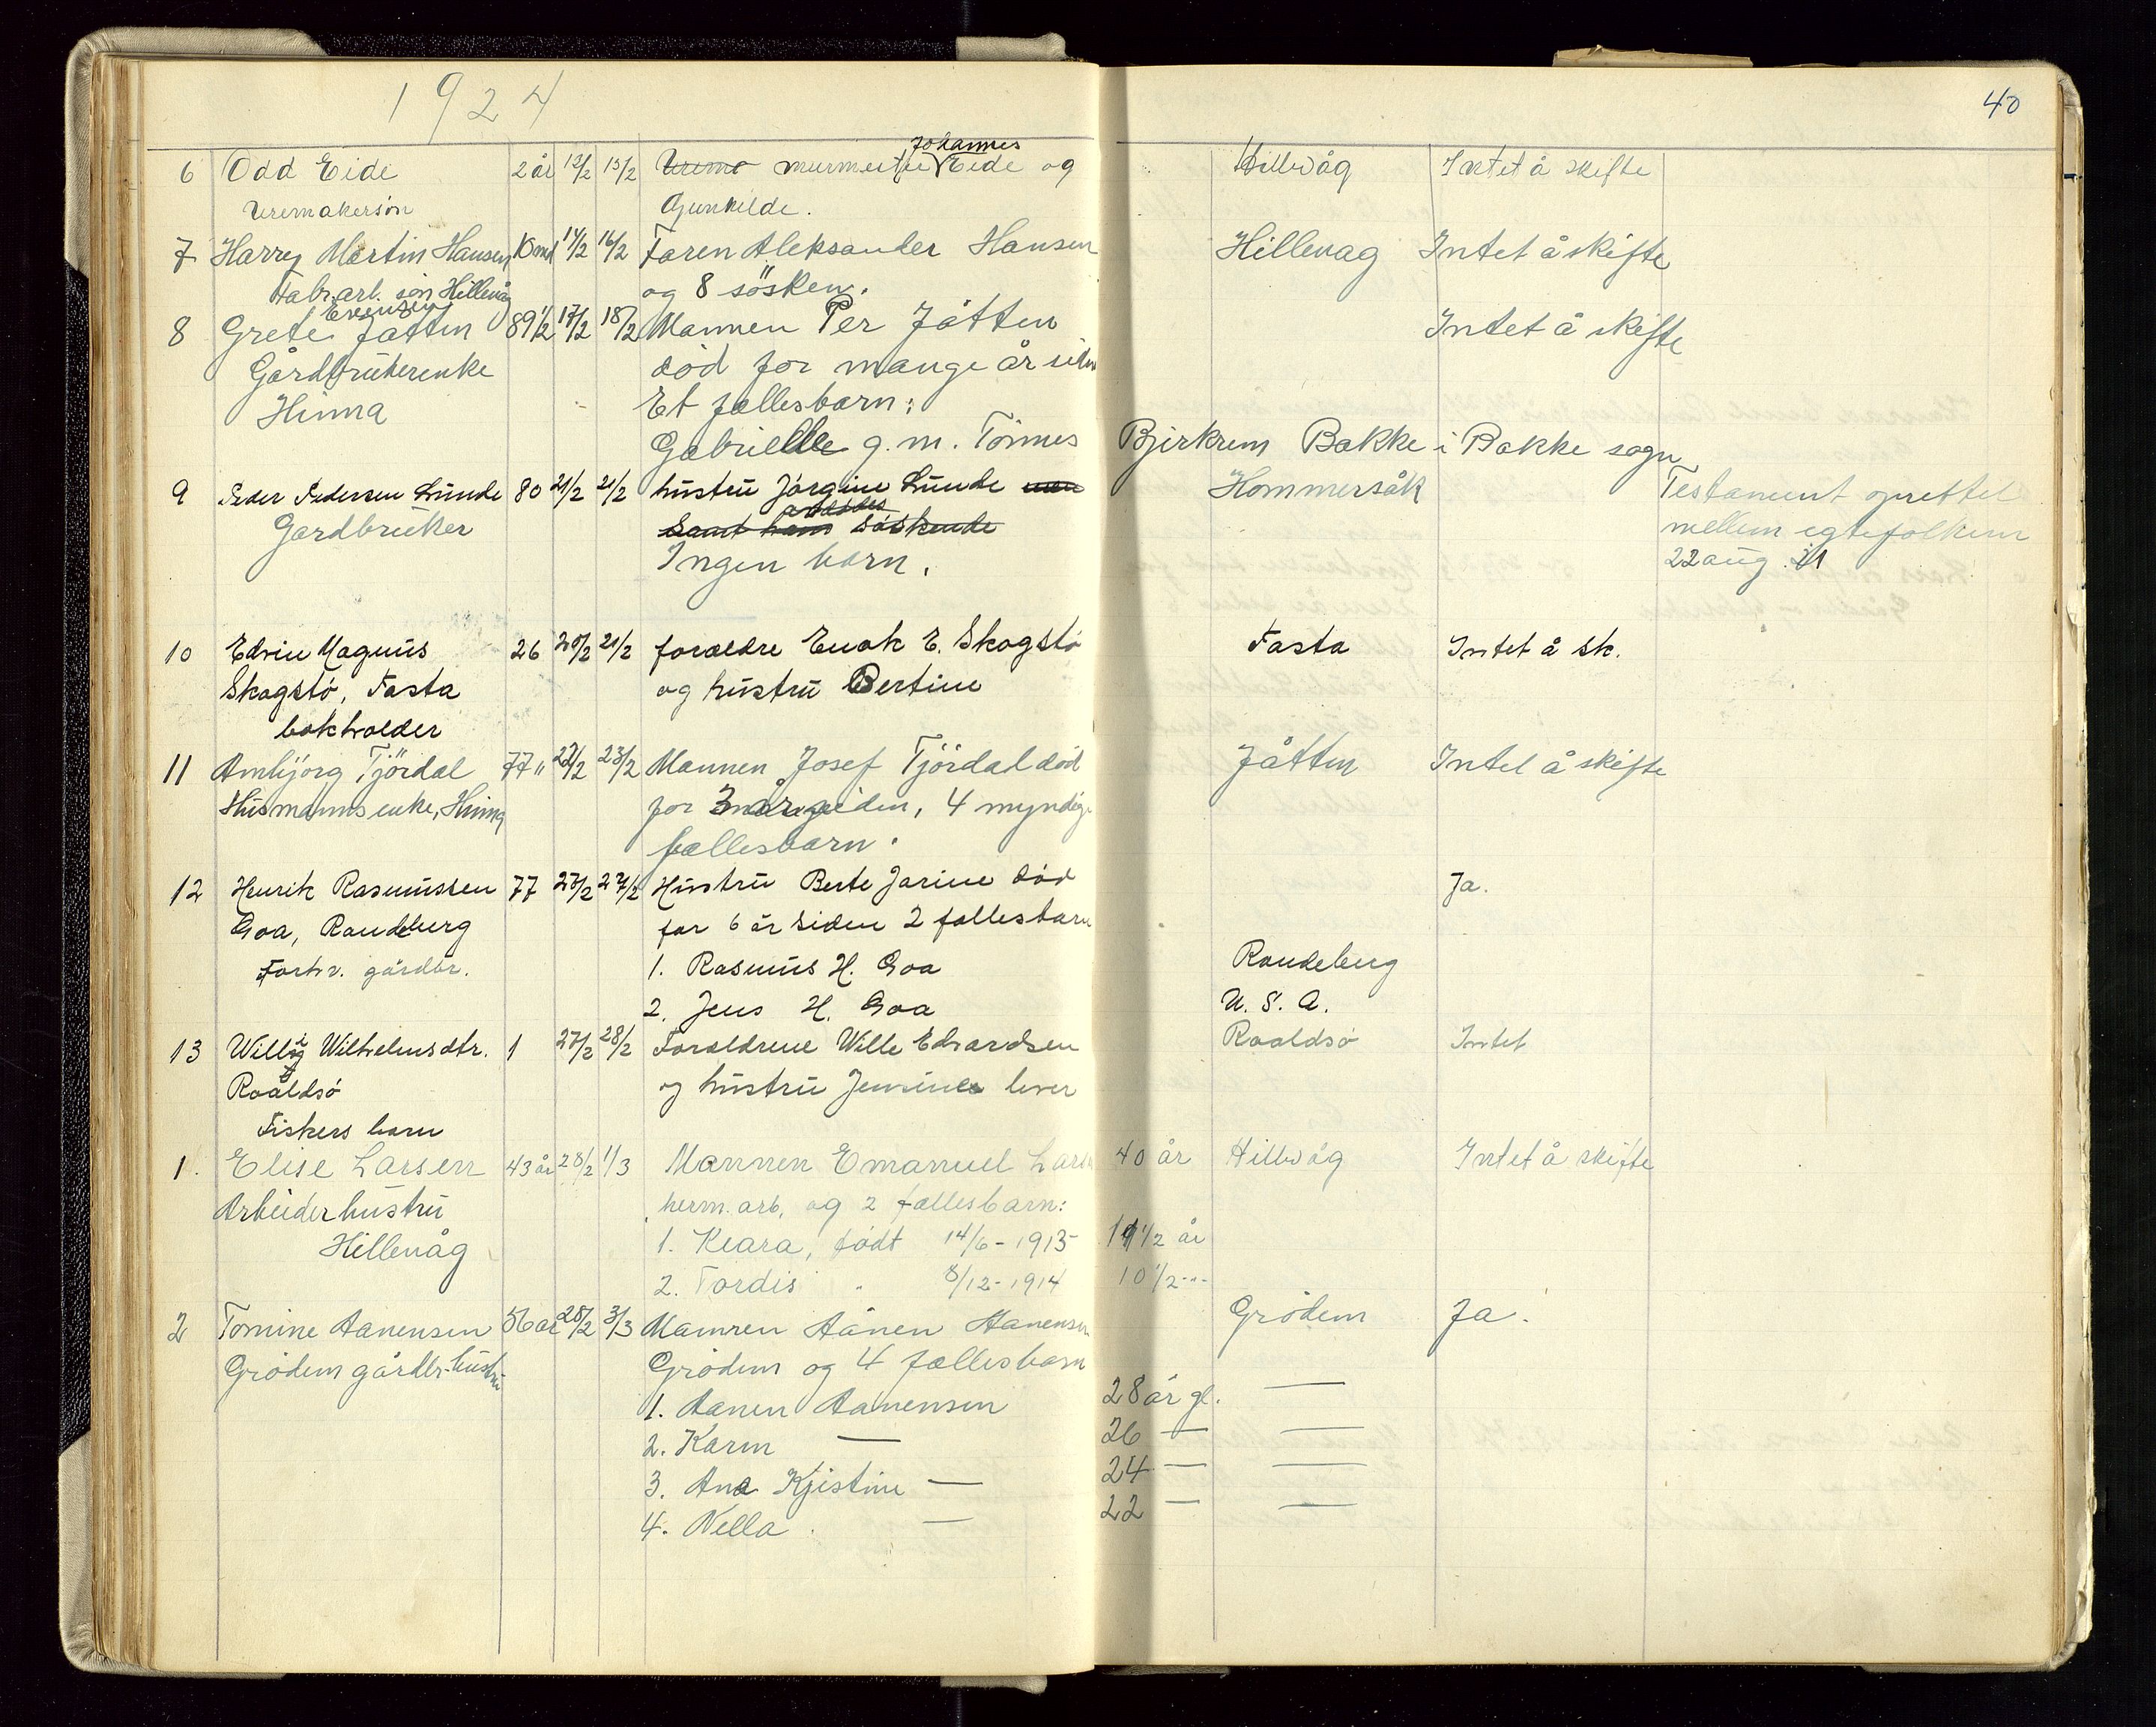 1924
40
6 Odd Eide 2 år 12/2 15/2 Urema murmester Johannes Eide og Hillevåg Intet å skifte
Uremakersön Gunhilde.
7 Harry Martin Hansen 10 md 14/2 16/2 Faren Aleksander Hansen Hillevag Intet å skifte
Fabr.arb. sön Hillevåg og 8 sösken.
8 Grete Evensen Jåtten 89 1/2 17/2 18/2 Mannen Per Jåtten Intet å skifte
Gårdbrukerenke död for mange år siden
Hinna Et fællesbarn:
Gabrielle g.m. Tönnes Bjerkrem Bakke i Bakke sogn
9 Peder Pedersen Lunde 80 21/2 21/2 hustru Jörgine Lunde men Hommersåk Testament oprettet
Gardbruker Samt hans avdödes söskende mellem egtefolkene
Ingen barn. 22 aug. 21
10 Edvin Magnus 26 20/2 21/2 foreldre Enok E. Skogstö Tasta Intet å sk.
Skogstö, Tasta og hustru Bertine
bokholder
11 Anbjörg Tjördal 77 " 22/2 23/2 Mannen Josef Tjördal död Jåtten Intet å skifte
Husmannsenke, Hinna for 3 år siden, 4 myndige
fællesbarn.
12 Henrik Rasmussen 77 23/2 27/2 Hustru Berte Jarine död Ja.
Goa, Randeberg for 6 år siden 2 fellesbarn
Forhv. gårdbr. 1. Rasmus H. Goa Randeberg
2. Jens H. Goa U. S. A.
13 Willy Wilhelmsdtr. 1 27/2 28/2 Foreldrene Wille Edvardsen Roaldsö Intet
Roaldsö og hustru Jensine lever
Fiskers barn
1. Elise Larsen 43 år 28/2 1/3 Mannen Emanuel Larsen 40 år Hillevåg Intet å skifte
Arbeiderhustru herm. arb. og 2 fællesbarn:
Hillevåg 1. Klara, födt 14/6 - 1913 11 1/2 år
2. Tordis " 8/12 - 1914 10 1/2 - " -
2 Tomine Aanensen 56 år 28/2 3/3 Mannen Aanen Aanensen Grödem Ja.
Grödem gårdbr. hustru Grödem og 4 fællesbarn
1. Aanen Aanensen 28 år gl. —
2. Karen — 26 — —
3. Ana Kjistine — 24 — —
4. Nella — 22 — —